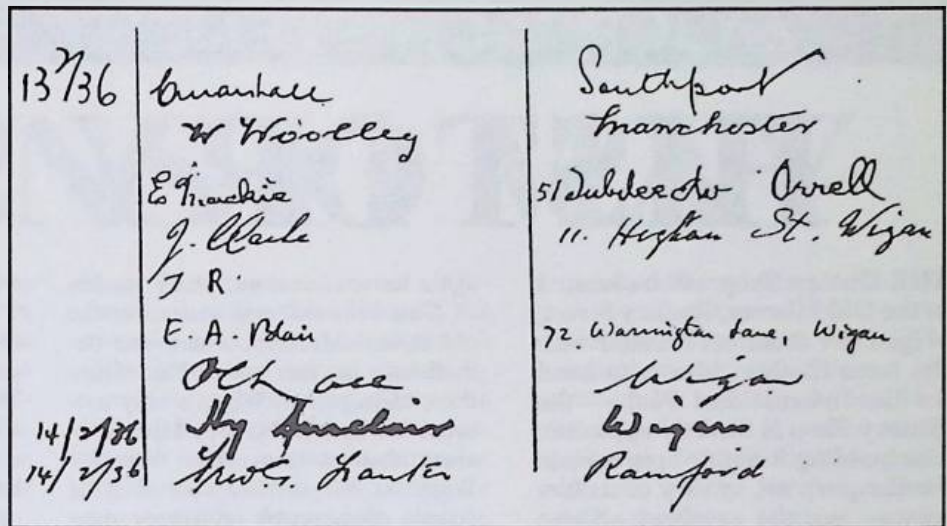 13/2/36 Southport
W Woolley Manchester
E Mackie 51 Orrell
J. Clarke 11. Higham St. Wigan
J R.
E. A. Blair 72. Warrington Lane, Wigan
Wigan
14/2/36 Hy Sinclair Wigan
14/2/36 Rainford